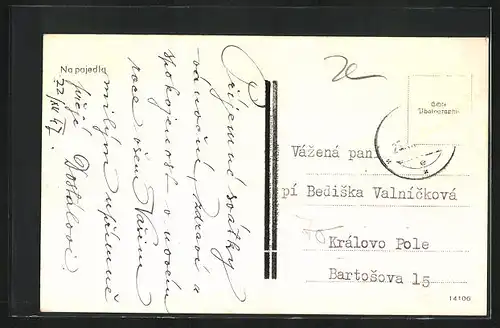 Na pojedlu
22/XII 47.
Příjemné svátky
vánoční, zdraví a
spokojenost v novém
roce všem Vašim
milým upřímně
přejí Dostálovi.
Vážená paní
pí Bediška Valníčková
Královo Pole
Bartošova 15
14106